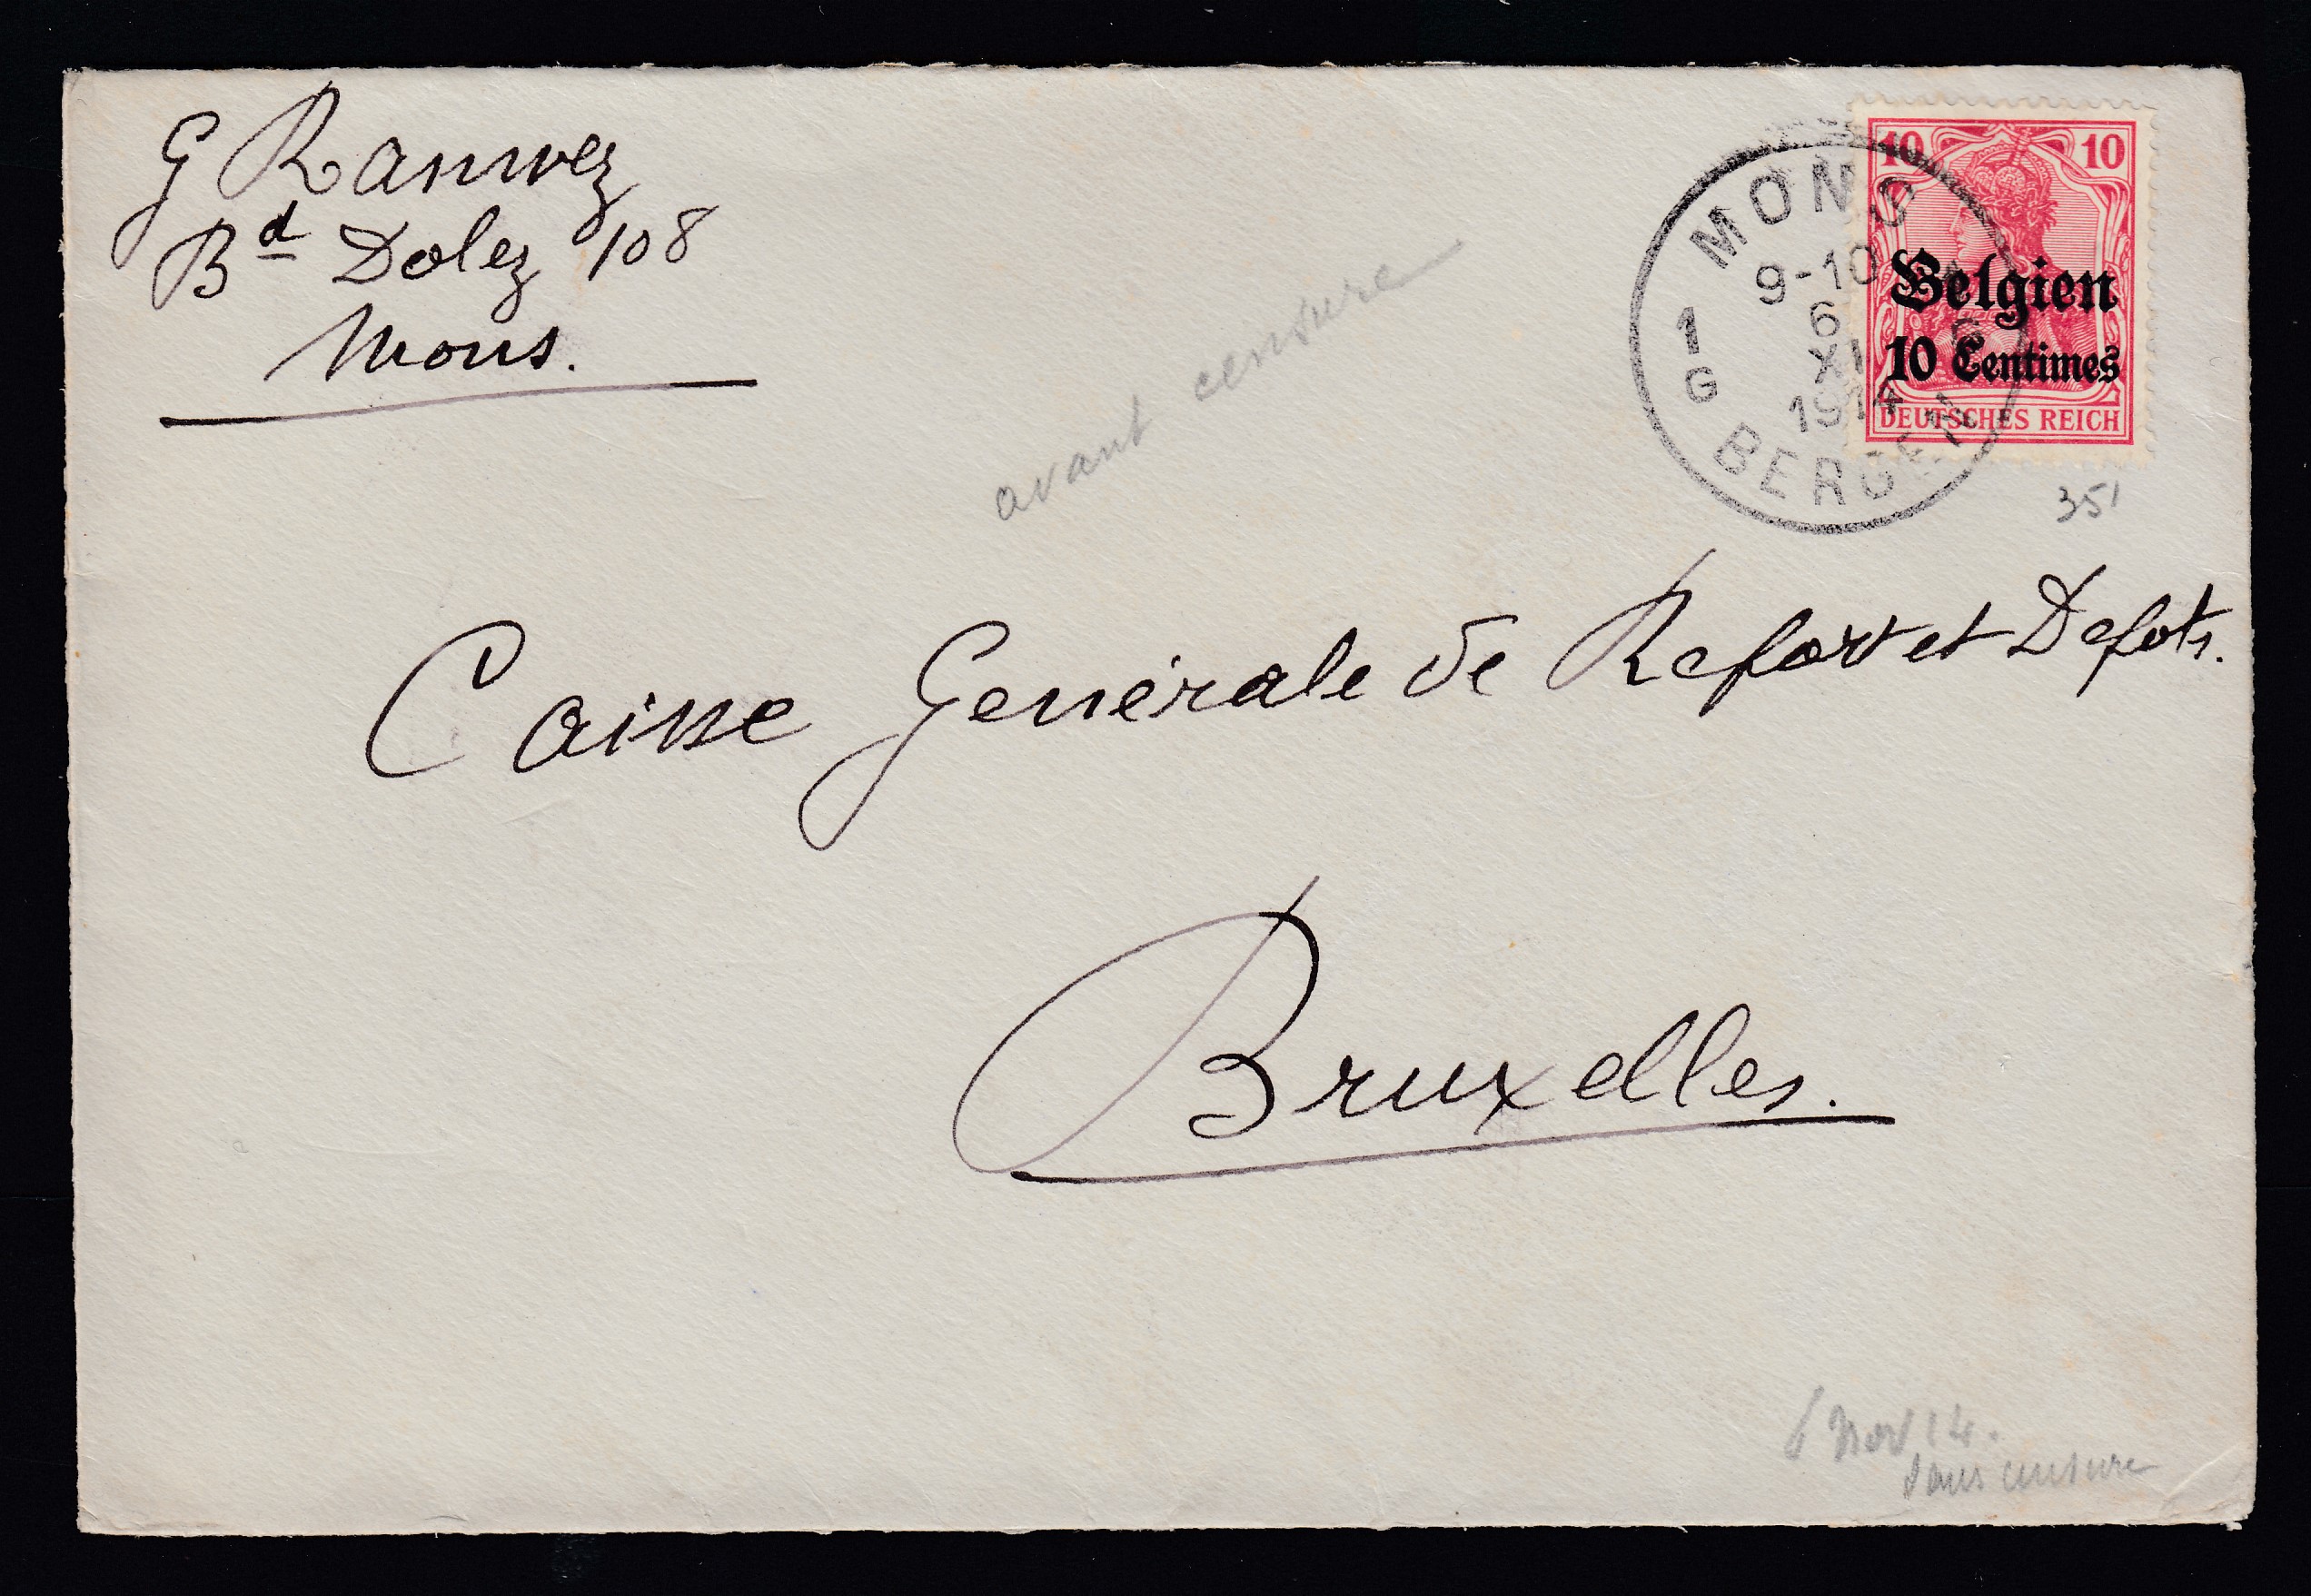 G Ranwez
Bd Dolez 108
Mons.
avant censure
MONS
9-10
6
XI
1914
1 G
1 G
BERGEN
10 10
Belgien
10 Centimes
DEUTSCHES REICH
351
Caisse Generale de Report et Depots.
Bruxelles.
6 Nov 14.
sans censure